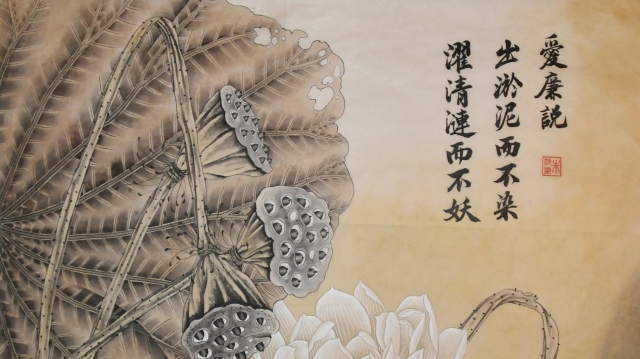 愛廉説
出淤泥而不染
濯清漣而不妖